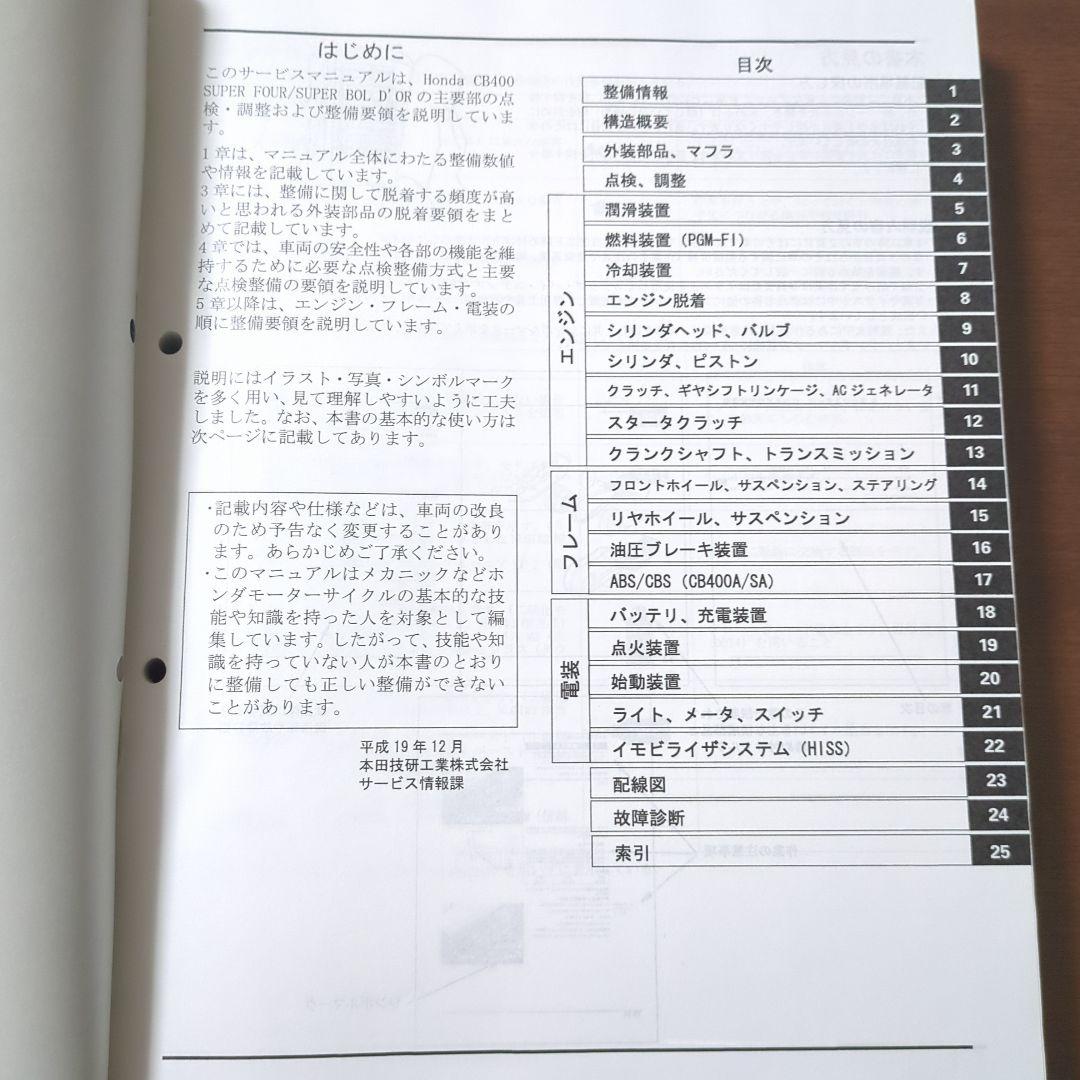 はじめに
このサービスマニュアルは、Honda CB400
SUPER FOUR/SUPER BOL D'OR の主要部の点
検・調整および整備要領を説明していま
す。
1 章は、マニュアル全体にわたる整備数値
や情報を記載しています。
3 章には、整備に関して脱着する頻度が高
いと思われる外装部品の脱着要領をまと
めて記載しています。
4 章では、車両の安全性や各部の機能を維
持するために必要な点検整備方式と主要
な点検整備の要領を説明しています。
5 章以降は、エンジン・フレーム・電装の
順に整備要領を説明しています。
説明にはイラスト・写真・シンボルマーク
を多く用い、見て理解しやすいように工夫
しました。なお、本書の基本的な使い方は
次ページに記載してあります。
・記載内容や仕様などは、車両の改良
のため予告なく変更することがあり
ます。あらかじめご了承ください。
・このマニュアルはメカニックなどホ
ンダモーターサイクルの基本的な技
能や知識を持った人を対象として編
集しています。したがって、技能や知
識を持っていない人が本書のとおり
に整備しても正しい整備ができない
ことがあります。
平成 19 年 12 月
本田技研工業株式会社
サービス情報課
目次
整備情報 1
構造概要 2
外装部品、マフラ 3
点検、調整 4
エンジン
潤滑装置 5
燃料装置 (PGM-FI) 6
冷却装置 7
エンジン脱着 8
シリンダヘッド、バルブ 9
シリンダ、ピストン 10
クラッチ、ギヤシフトリンケージ、AC ジェネレータ 11
スタータクラッチ 12
クランクシャフト、トランスミッション 13
フレーム
フロントホイール、サスペンション、ステアリング 14
リヤホイール、サスペンション 15
油圧ブレーキ装置 16
ABS/CBS (CB400A/SA) 17
電装
バッテリ、充電装置 18
点火装置 19
始動装置 20
ライト、メータ、スイッチ 21
イモビライザシステム (HISS) 22
配線図 23
故障診断 24
索引 25